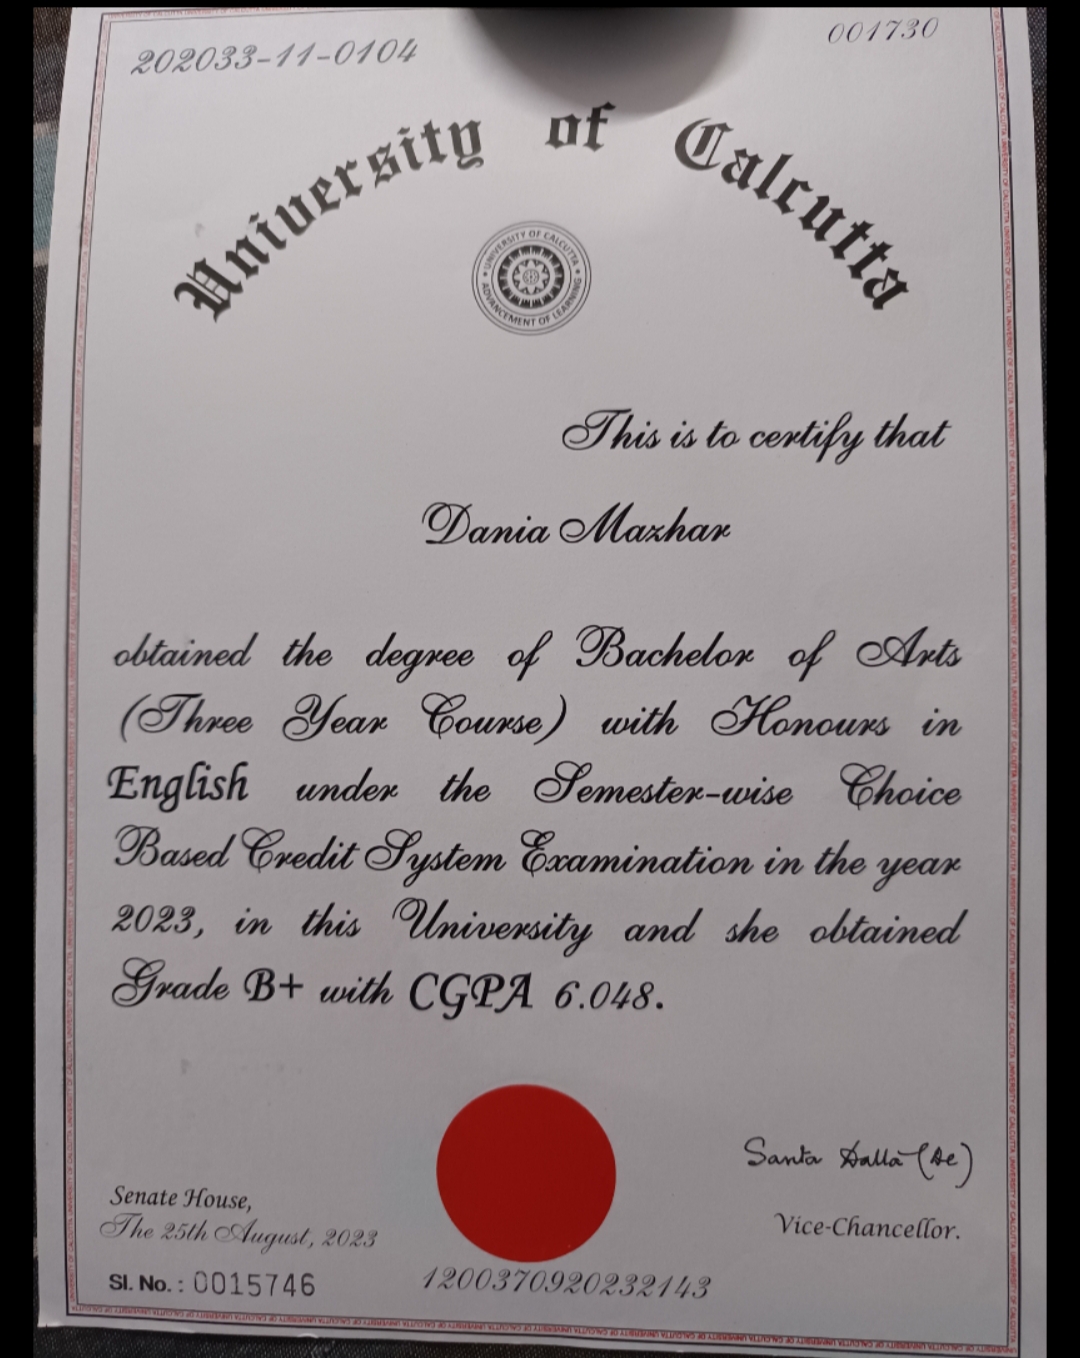 202033-11-0104
001730
University of Calcutta
UNIVERSITY OF CALCUTTA
ADVANCEMENT OF LEARNING
This is to certify that
Dania Mazhar
obtained the degree of Bachelor of Arts
(Three Year Course) with Honours in
English under the Semester-wise Choice
Based Credit System Examination in the year
2023, in this University and she obtained
Grade B+ with CGPA 6.048.
Santa Datta (De)
Senate House,
The 25th August, 2023
Vice-Chancellor.
Sl. No. : 0015746
1200370920232143